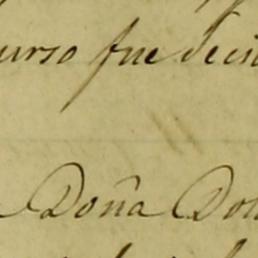 urso fue deci
Doña Do